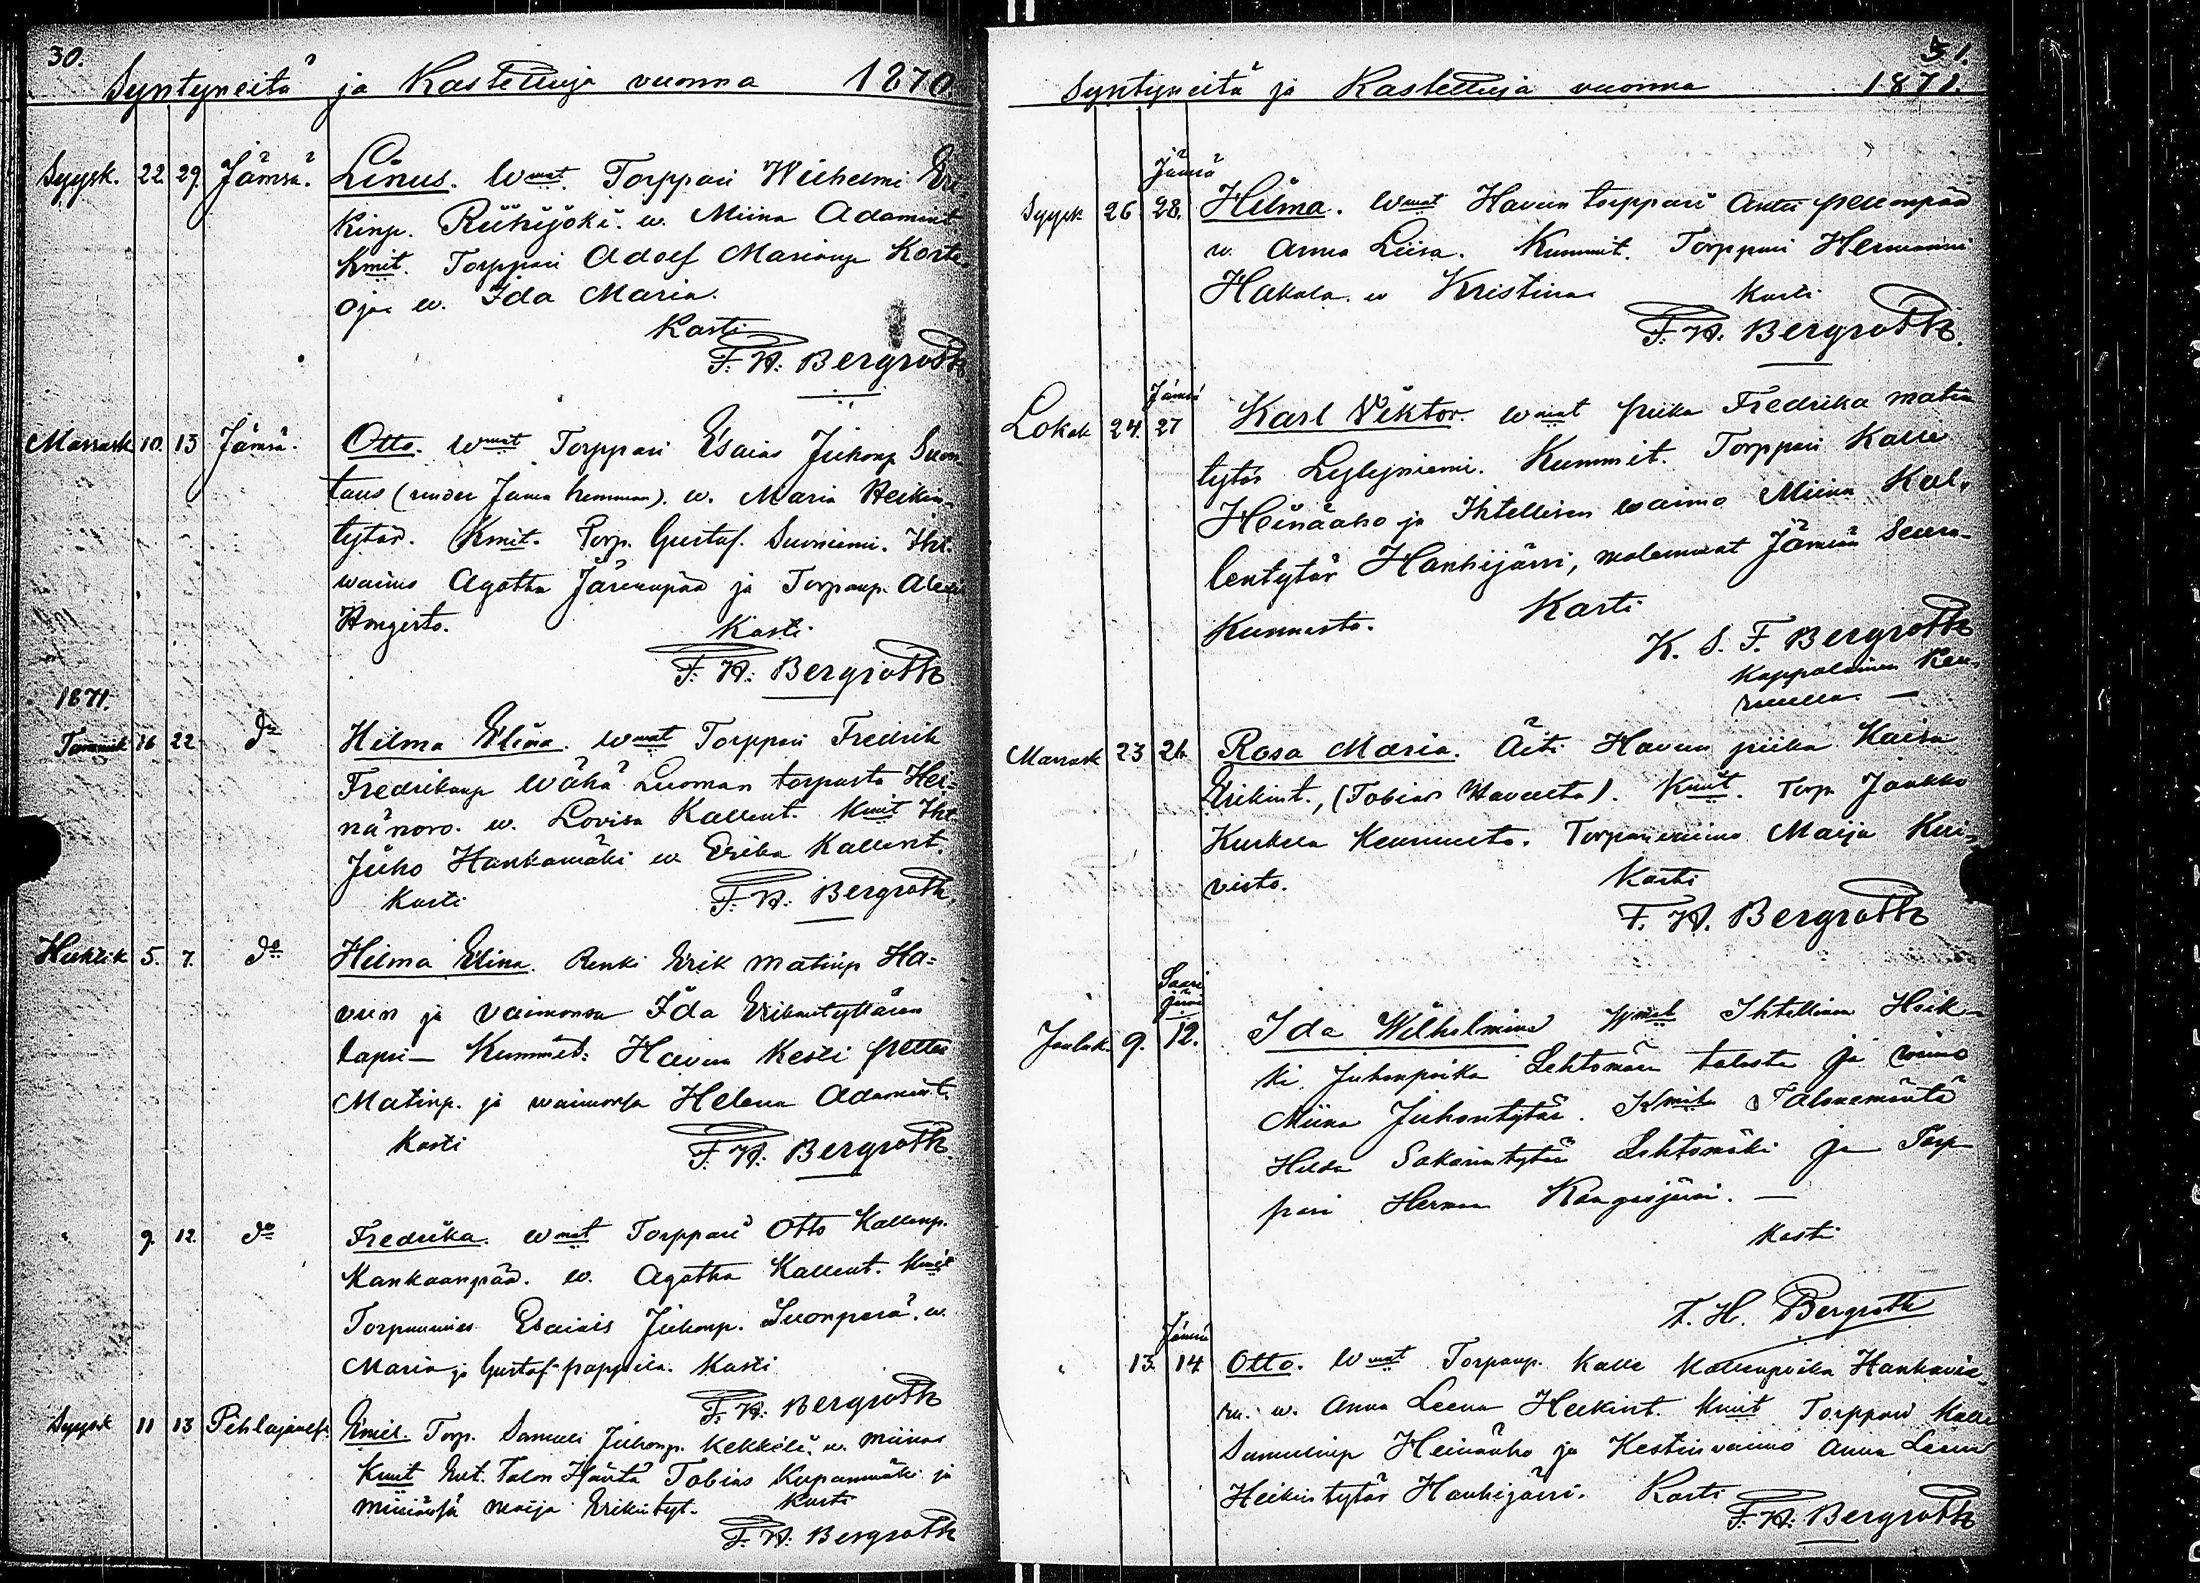 30.
Syntyneitä ja Kastettuja vuonna 1870
Syysk. 22. 29. Jämsä. Linus. Wmat. Torppari Wilhelmi Eri
kinp. Riihijoki. w. Miina Adamint
Kmit. Torppari Adolf Marianp Korte
oja w. Ida Maria.
Kasti
F. H. Bergroth
Marrask 10. 13 Jämsä. Otto. Wmat Torppari Esaias Juhonp Suon
taus (under Juma hemman). w. Maria Heikin
tytär. Kmit. Torp. Gustaf. Suoniemi. Iht.
waimo Agatha Järvenpää ja Torpanp. Alexi
Hongisto. Kasti
F. H. Bergroth
1871.
Tammik 16 22 do Hilma Elina. Wmat Torppari Fredrik
Fredrikinp Wähä Luoman torpasta Hei-
nänoro. w. Lovisa Kallent. Kmit Iht
Juho Hankamäki w Erika Kallent.
Kasti F. H. Bergroth
Huhtik 5. 7. do Hilma Elina. Renki Erik Matinp Ha-
vun ja vaimonsa Ida Erikintyttären
lapsi – Kummit: Havun Kesti Petter
Matinp. ja waimonsa Helena Adamint.
Kasti F. H. Bergroth
" 9. 12. do Fredrika. Wmat Torppari Otto Kallenp.
Kankaanpää. w. Agatha Kallent. Kmit
Torpanmies Esaias Juhonp. Suonperä. w.
Maria ja Gustaf Pappila. Kasti
F. H. Bergroth
Syysk 11 13 Pihlajavesi Emil. Torp. Samuli Juhonp. Kekkilä. w. Miina
Kmit Ent. Talon Isäntä Tobias Kupanmäki ja
miniänsä Maija Erikintyt. Kasti
F. H. Bergroth
31.
Syntyneitä ja Kastettuja vuonna 1871.
Jämsä
Syysk 26 28. Hilma. Wmat Havun torppari Antti Petäänpää
w. Anna Liisa. Kummit. Torppari Hermanni
Hakala. w Kristina Kasti
F. H. Bergroth.
Jämsä
Lokak 24. 27 Karl Viktor. Wmat Piika Fredrika Matin
tytär Lylyniemi. Kummit. Torppari Kalle
Heinäaho ja Ihtellisen waimo Miina Kal-
lentytär Hanhijärvi, molemmat Jämsän Seura-
kunnasta. Kasti
K. S. F. Bergroth
Kappalainen Keu-
ruulla. —
Marrask 23 26 Rosa Maria. Äiti Havun piika Kaisa
Erikint., (Tobias Havulta). Kmit. Torp Jaakko
Kurkela Keuruulta. Torpanwaimo Marja Kui-
visto. Kasti
F. H. Bergroth
Saari
järvi
Jouluk. 9. 12. Ida Wilhelmina Wmat Ihtellinen Heik-
ki Juhonpoika Lehtomäen talosta ja waimo
Miina Juhontytär. Kmit Talonemäntä
Hilda Sakarintytär Lehtomäki ja Torp
pari Herman Kangasjärvi. —
Kasti
F. H. Bergroth
Jämsä
" 13. 14 Otto. Wmat Torpanp. Kalle Kallenpoika Hankavie-
ru. w. Anna Leena Heikint. Kmit Torppari Kalle
Samulinp Heinäaho ja Kestinvaimo Anna Leena
Heikintytär Hanhijärvi. Kasti
F. H. Bergroth